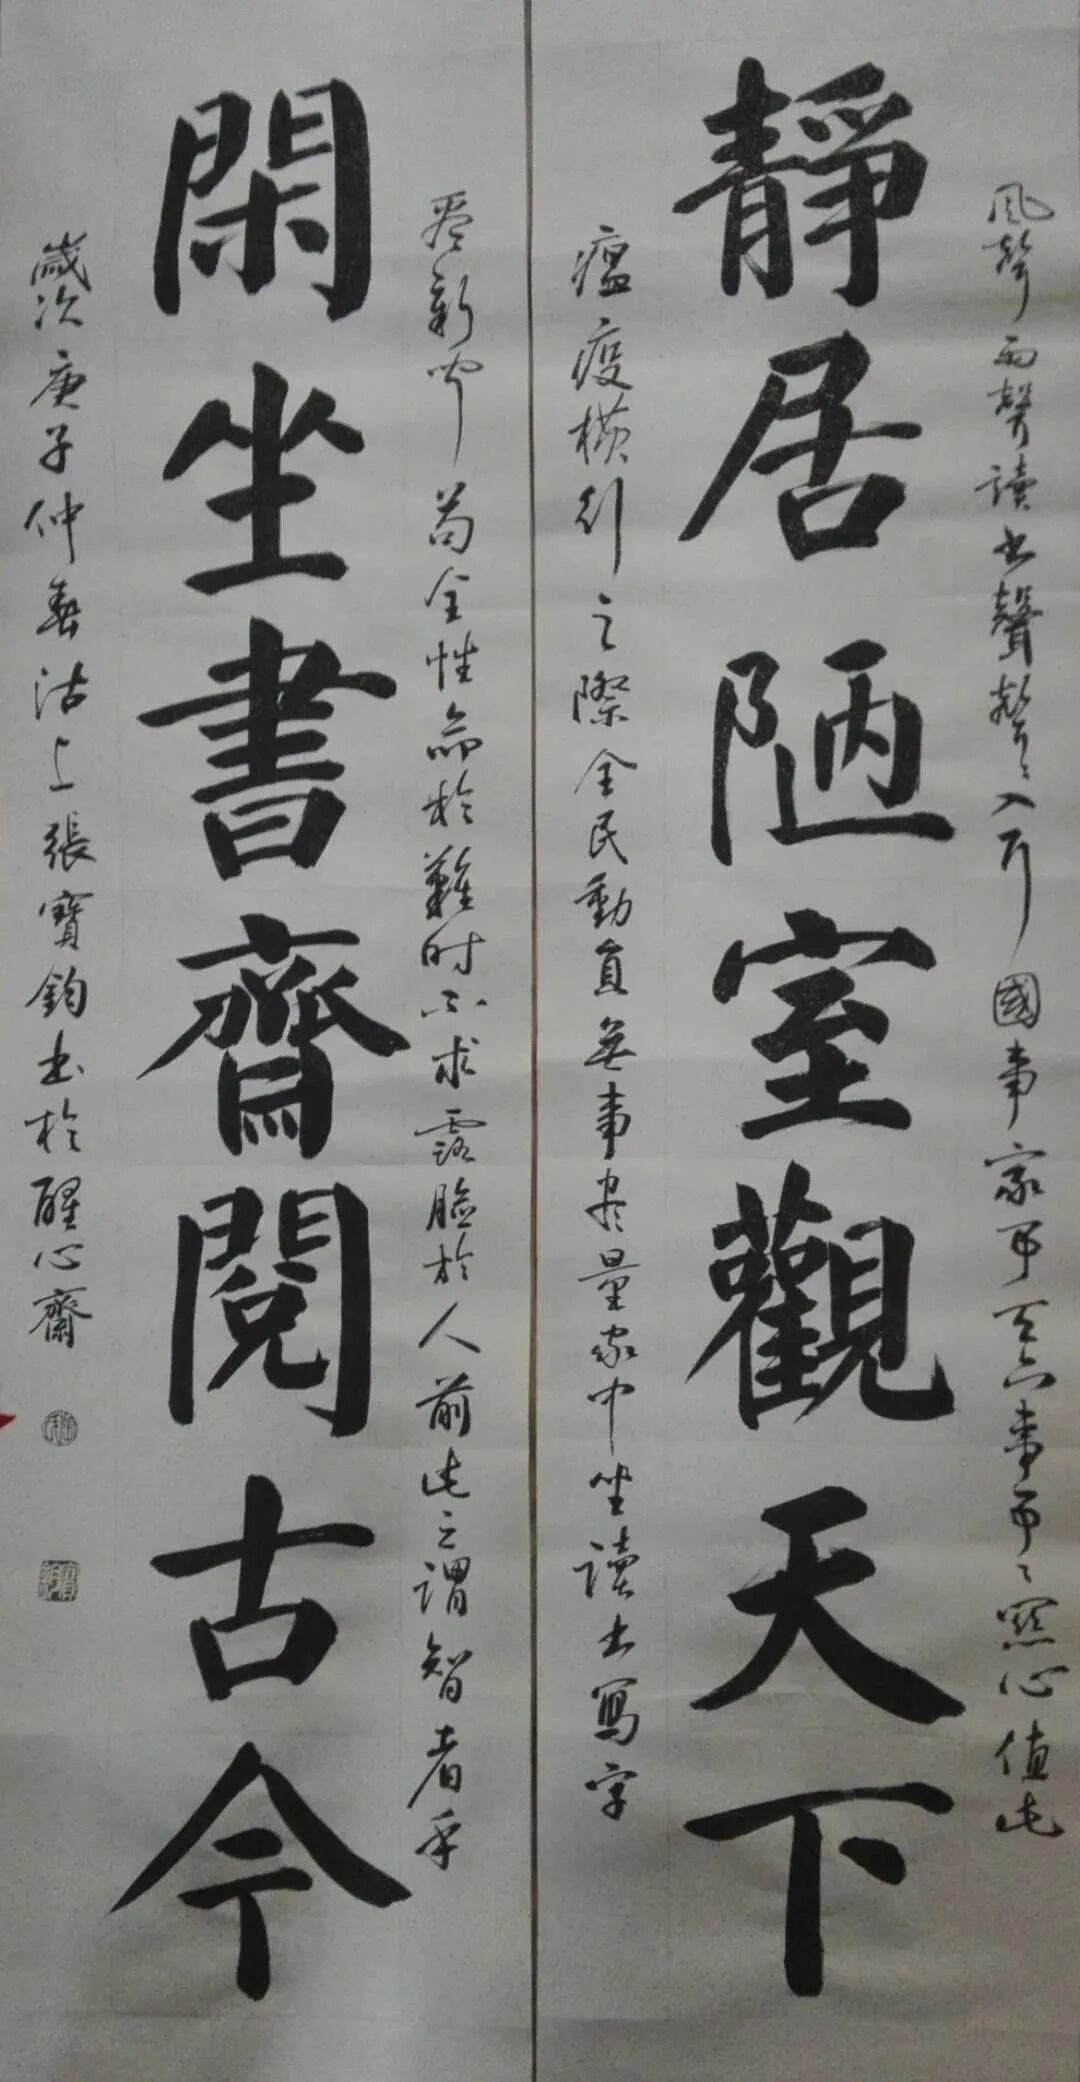 風聲雨聲讀书聲聲聲入耳國事家事天下事事事關心值此
靜居陋室觀天下
瘟疫横行之際全民動員無事尽量家中坐讀书寫字
看新聞苟全性命於難时不求露臉於人前此之謂智者乎
閑坐書齋閱古今
歲次庚子仲春沽上張寶鈞书於醒心齋